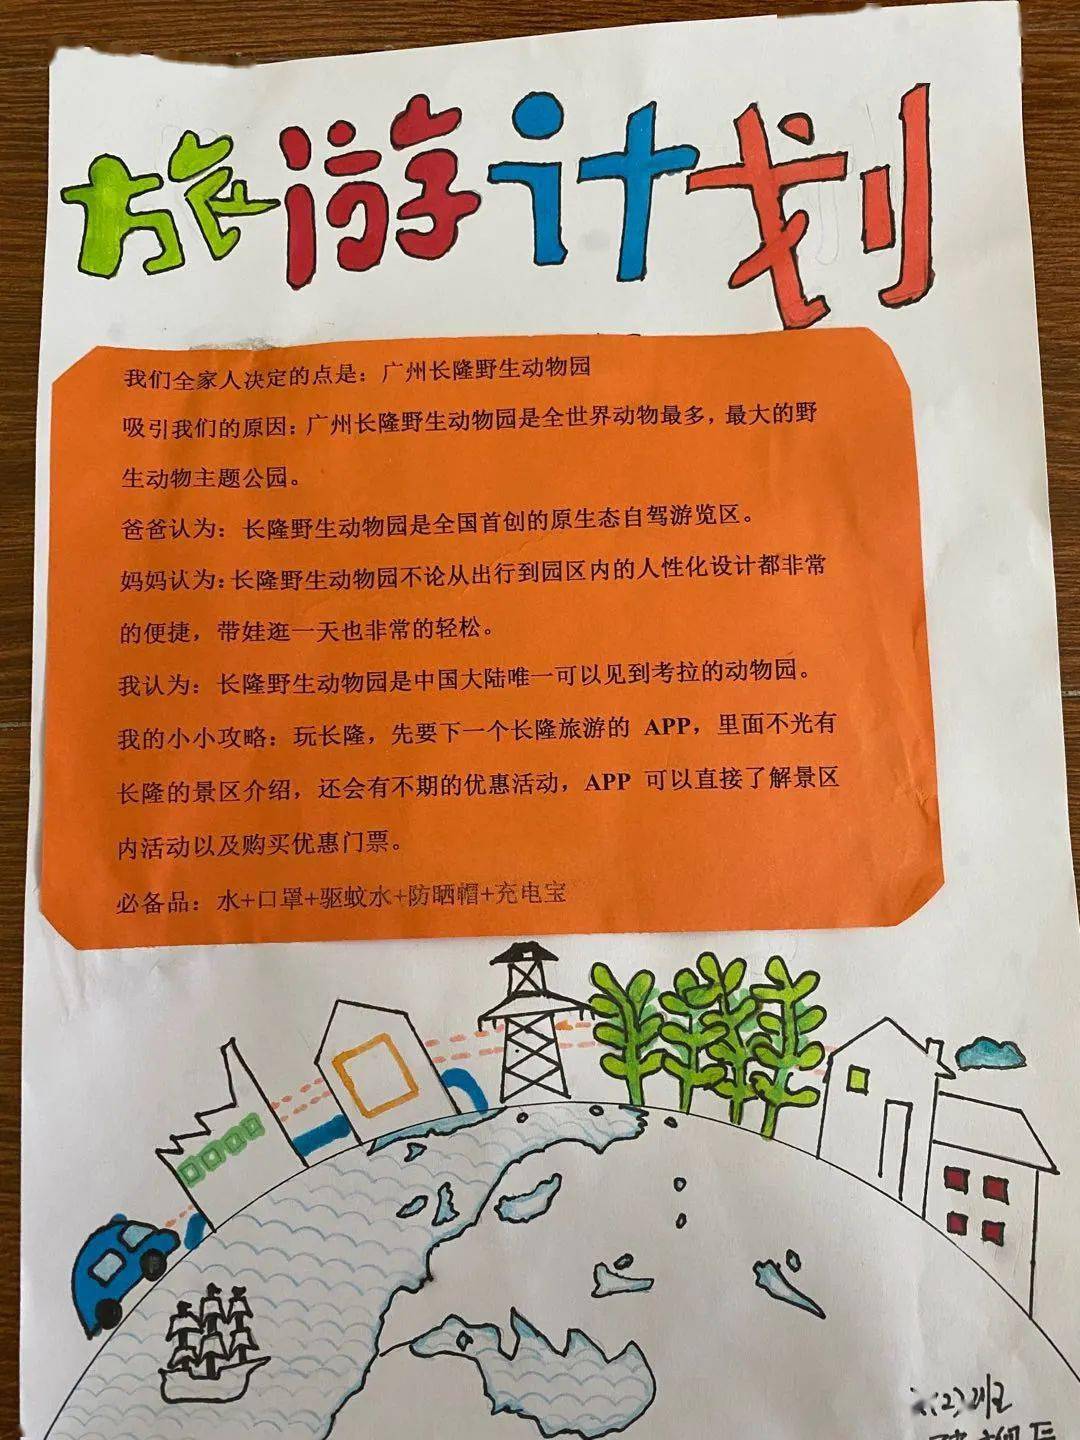 旅游计划
我们全家人决定的点是：广州长隆野生动物园
吸引我们的原因：广州长隆野生动物园是全世界动物最多，最大的野
生动物主题公园。
爸爸认为：长隆野生动物园是全国首创的原生态自驾游览区。
妈妈认为：长隆野生动物园不论从出行到园区内的人性化设计都非常
的便捷，带娃逛一天也非常的轻松。
我认为：长隆野生动物园是中国大陆唯一可以见到考拉的动物园。
我的小小攻略：玩长隆，先要下一个长隆旅游的 APP，里面不光有
长隆的景区介绍，还会有不期的优惠活动，APP 可以直接了解景区
内活动以及购买优惠门票。
必备品：水+口罩+驱蚊水+防晒帽+充电宝
(2)班